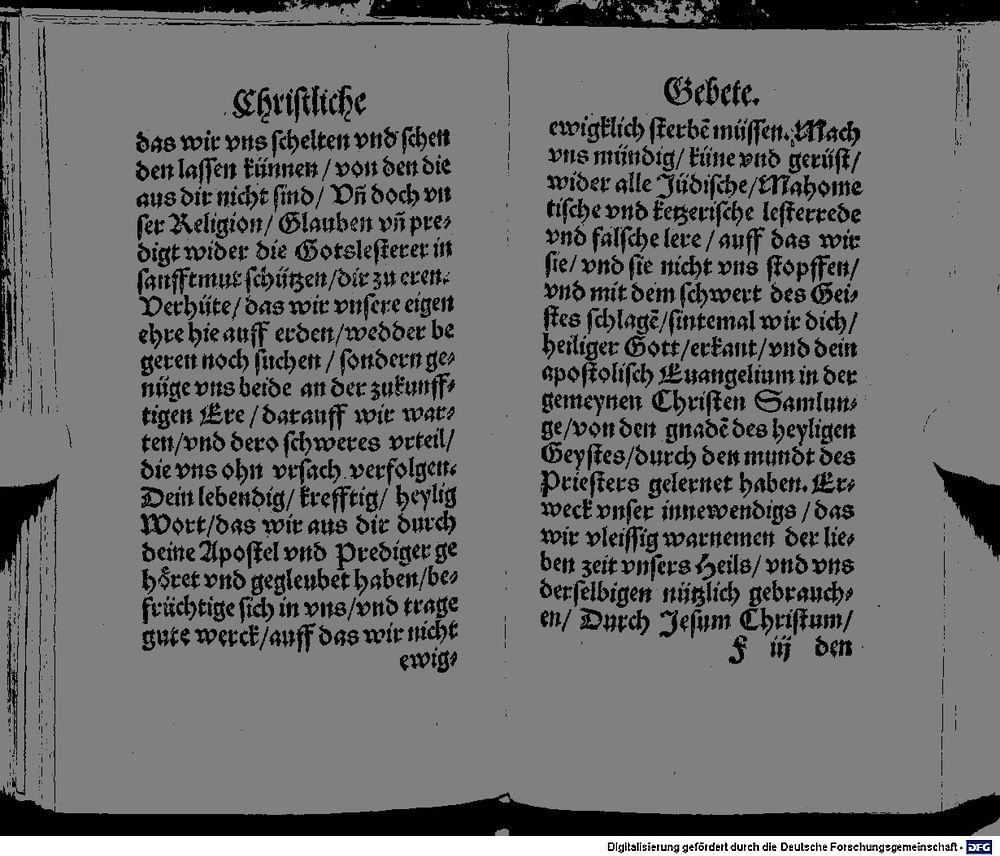 Christliche
das wir vns schelten vnd schen
den lassen künnen / von den die
aus dir nicht sind / Vñ doch vn
ser Religion / Glauben vñ pre⸗
digt wider die Gotslesterer in
sanfftmut schützen / dir zu eren.
Verhüte / das wir vnsere eigen
ehre hie auff erden / wedder be
geren noch suchen / sondern ge⸗
nüge vns beide an der zukunff⸗
tigen Ere / darauff wir war⸗
ten / vnd dero schweres vrteil /
die vns ohn vrsach verfolgen.
Dein lebendig / krefftig / heylig
Wort / das wir aus dir durch
deine Apostel vnd Prediger ge
höret vnd gegleubet haben / be⸗
früchtige sich in vns / vnd trage
gute werck / auff das wir nicht
ewig⸗
Gebete.
ewigklich sterbē müssen. Mach
vns mündig / küne vnd gerüst /
wider alle Jüdische / Mahome
tische vnd ketzerische lesterrede
vnd falsche lere / auff das wir
sie / vnd sie nicht vns stopffen /
vnd mit dem schwert des Gei⸗
stes schlagē / sintemal wir dich /
heiliger Gott / erkant / vnd dein
apostolisch Euangelium in der
gemeynen Christen Samlun⸗
ge / von den gnadē des heyligen
Geystes / durch den mundt des
Priesters gelernet haben. Er⸗
weck vnser innewendigs / das
wir vleissig warnemen der lie⸗
ben zeit vnsers Heils / vnd vns
derselbigen nützlich gebrauch⸗
en / Durch Jesum Christum /
F iij den
Digitalisierung gefördert durch die Deutsche Forschungsgemeinschaft - DFG